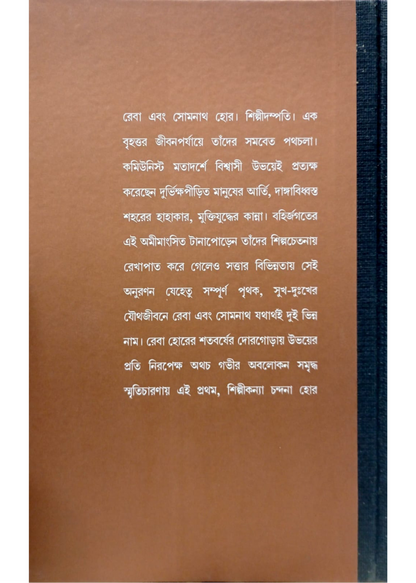 রেবা এবং সোমনাথ হোর। শিল্পীদম্পতি। এক
বৃহত্তর জীবনপর্যায়ে তাঁদের সমবেত পথচলা।
কমিউনিস্ট মতাদর্শে বিশ্বাসী উভয়েই প্রত্যক্ষ
করেছেন দুর্ভিক্ষপীড়িত মানুষের আর্তি, দাঙ্গাবিধ্বস্ত
শহরের হাহাকার, মুক্তিযুদ্ধের কান্না। বহির্জগতের
এই অমীমাংসিত টানাপোড়েন তাঁদের শিল্পচেতনায়
রেখাপাত করে গেলেও সত্তার বিভিন্নতায় সেই
অনুরণন যেহেতু সম্পূর্ণ পৃথক, সুখ-দুঃখের
যৌথজীবনে রেবা এবং সোমনাথ যথার্থই দুই ভিন্ন
নাম। রেবা হোরের শতবর্ষের দোরগোড়ায় উভয়ের
প্রতি নিরপেক্ষ অথচ গভীর অবলোকন সমৃদ্ধ
স্মৃতিচারণায় এই প্রথম, শিল্পীকন্যা চন্দনা হোর